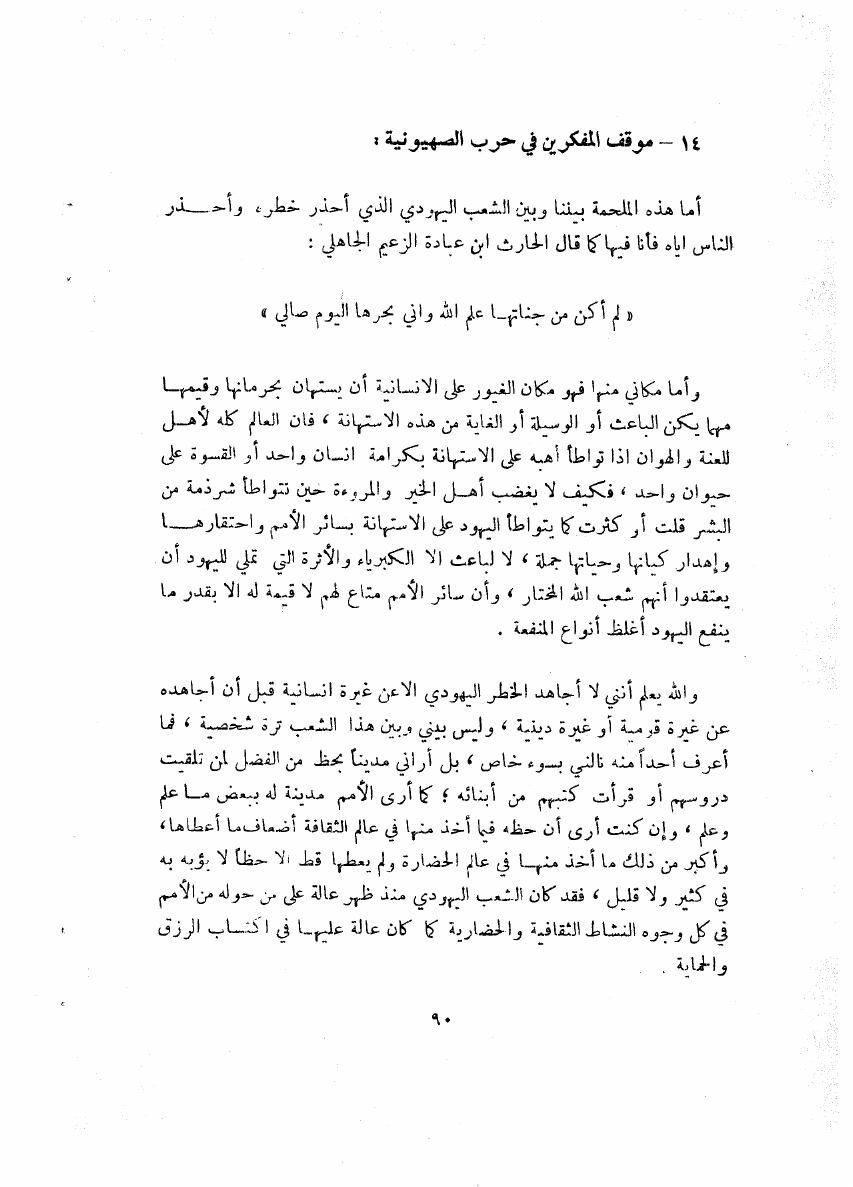 ١٤ – موقف المفكرين في حرب الصهيونية :
أما هذه الملحمة بيننا وبين الشعب اليهودي الذي أحذر خطره، وأحـــذر
الناس اياه فأنا فيها كما قال الحارث ابن عبادة الزعيم الجاهلي :
« لم أكن من جناتهـا علم الله واني بحرها اليوم صالي »
وأما مكاني منها فهو مكان الغيور على الانسانية أن يستهان بحرماتها وقيمهـا
مهما يكن الباعث أو الوسيلة أو الغاية من هذه الاستهانة ، فان العالم كله لأهـل
للعنة والهوان اذا تواطأ أهبه على الاستهانة بكرامة انسان واحد أو القسوة على
حيوان واحد ، فكيف لا يغضب أهـل الخير والمروءة حين تتواطأ شرذمة من
البشر قلت أو كثرت كما يتواطأ اليهود على الاستهانة بسائر الأمم واحتقارهـا
وإهدار كيانها وحياتها جملة ، لا لباعث الا الكبرياء والأثرة التي تملي لليهود أن
يعتقدوا أنهم شعب الله المختار ، وأن سائر الأمم متاع لهم لا قيمة له الا بقدر ما
ينفع اليهود أغلظ أنواع المنفعة .
والله يعلم أنني لا أجاهد الخطر اليهودي الاعن غيرة انسانية قبل أن أجاهده
عن غيرة قومية أو غيرة دينية ، وليس بيني وبين هذا الشعب ترة شخصية ، فما
أعرف أحداً منه نالني بسوء خاص ، بل أراني مديناً بحظ من الفضل لمن تلقيت
دروسهم أو قرأت كتبهم من أبنائه ؛ كما أرى الأمم مدينة له ببعض مـا علم
وعلم ، وإن كنت أرى أن حظه فيما أخذ منها في عالم الثقافة أضعاف ما أعطاها،
وأكبر من ذلك ما أخذ منهـا في عالم الحضارة ولم يعطها قط الا حظاً لا يؤبه به
في كثير ولا قليل ، فقد كان الشعب اليهودي منذ ظهر عالة على من حوله من الأمم
في كل وجوه النشاط الثقافية والحضارية كما كان عالة عليهـا في اكتساب الرزق
والحماية .
٩٠